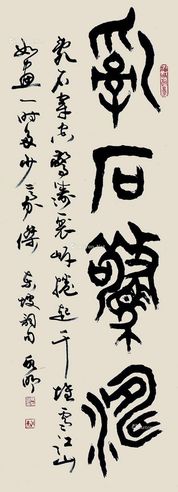 亂石驚濤
乱石穿空驚濤裂岸捲起千堆雪江山
如畫一時多少豪傑 東坡詞句